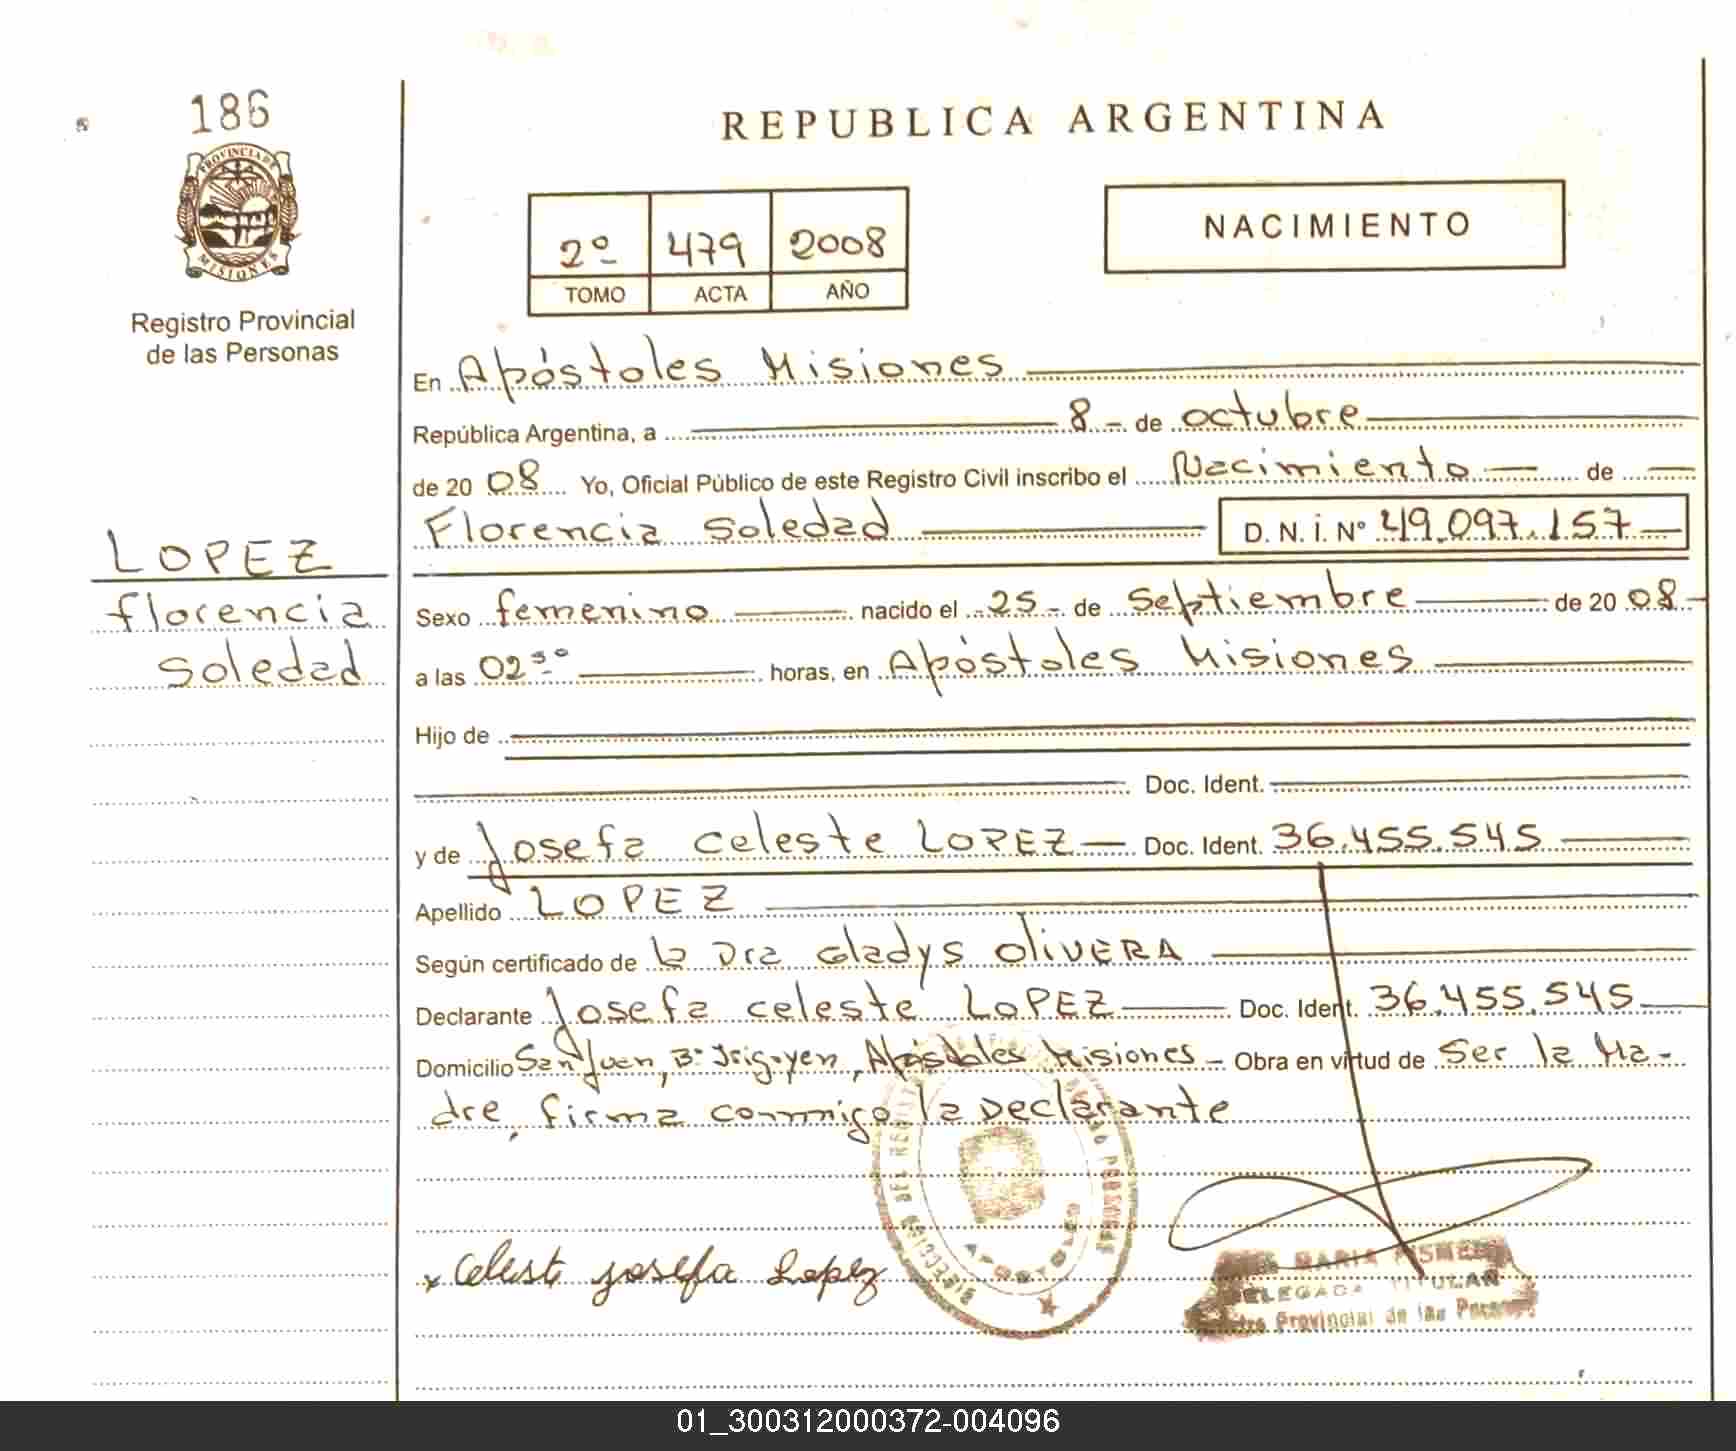 186
PROVINCIA DE
MISIONES
Registro Provincial
de las Personas
LOPEZ
florencia
soledad
REPUBLICA ARGENTINA
2º 479 2008
TOMO ACTA AÑO
NACIMIENTO
En Apóstoles Misiones
República Argentina, a 8 - de octubre
de 20 08 Yo, Oficial Público de este Registro Civil inscribo el Nacimiento de
Florencia soledad D. N. I. Nº 49.097.157
Sexo femenino nacido el 25 - de septiembre de 20 08
a las 02³⁰ horas, en Apóstoles Misiones
Hijo de
Doc. Ident.
y de Josefa celeste LOPEZ Doc. Ident. 36.455.545
Apellido LOPEZ
Según certificado de la Dra Gladys OliVERA
Declarante Josefa celeste LOPEZ Doc. Ident. 36.455.545
Domicilio San Juan, Bº Irigoyen, Apóstoles Misiones - Obra en virtud de ser la Ma-
dre, firma conmigo la Declarante
x Celeste josefa Lopez
DEL
APOSTOLES
MARIA
DELEGADA TITULAR
Provincial de las
01_300312000372-004096